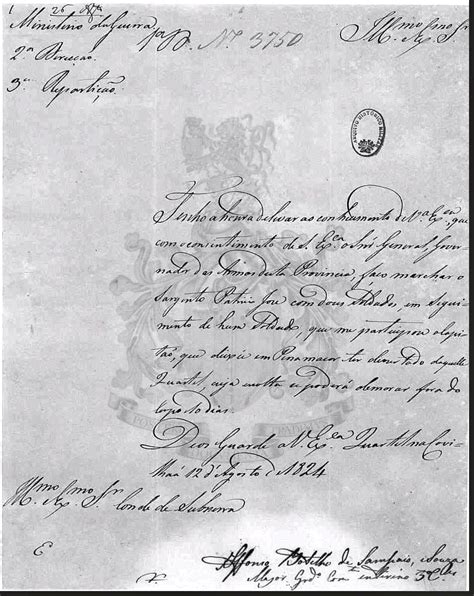 1 26
Ministerio da Guerra
1ª D. Nº 3750
Illmo Exmo Snr
2ª Direcção
3ª Repartição.
ARQUIVO HISTÓRICO MILITAR
Tenho a honra de levar ao conhecimento de V.ª Ex.cia, que
com o consentimento de S. Ex.cia o Snr General Gover
nador das Armas desta Provincia, faço marchar o
Sargento Patricio José com dous Soldados em Segui
mento de hum Soldado, que me participou o Capi
tão, que dirigio em Penamacor ter desertado daquelle
Quartel, cuja escolta se poderá demorar fora do
Corpo 10 dias.
Deos Guarde a V.ª Ex.cia Quartel na Covi
lhaã 12 d'Agosto de 1824
Illmo Exmo Snr
Conde de Subserra
Affonso Botelho de Sampaio, e Souza
Major Grd.º Com.te interino